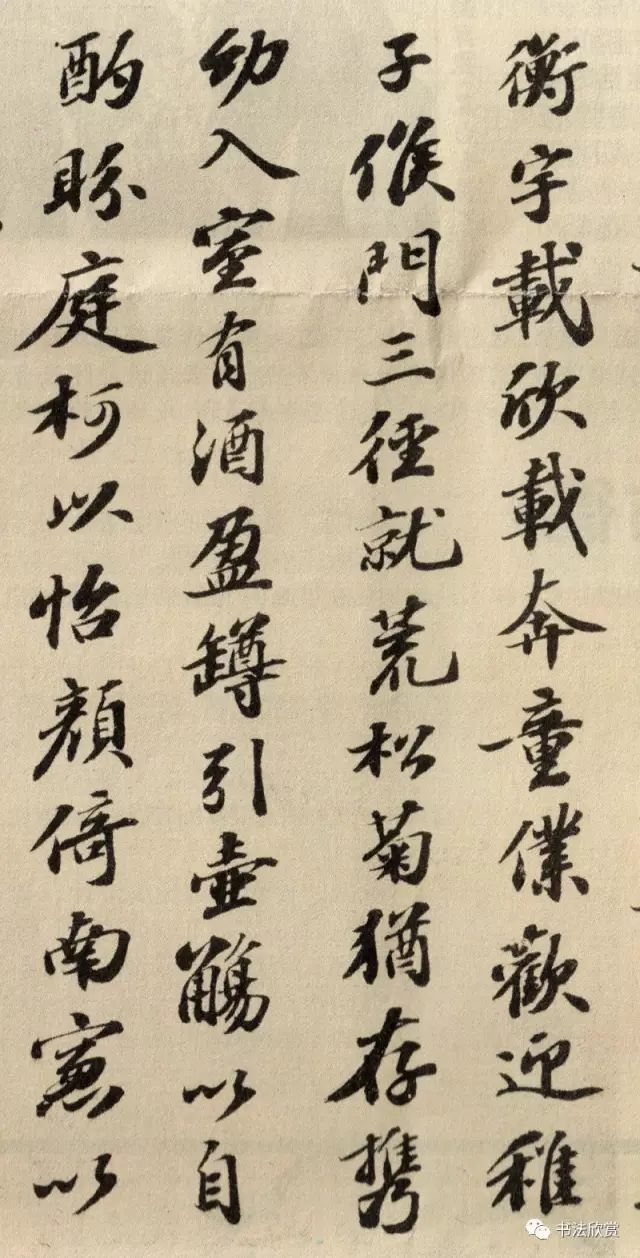 衡宇載欣載奔童僕歡迎稚
子候門三徑就荒松菊猶存携
幼入室有酒盈罇引壺觴以自
酌眄庭柯以怡顏倚南窓以
书法欣赏